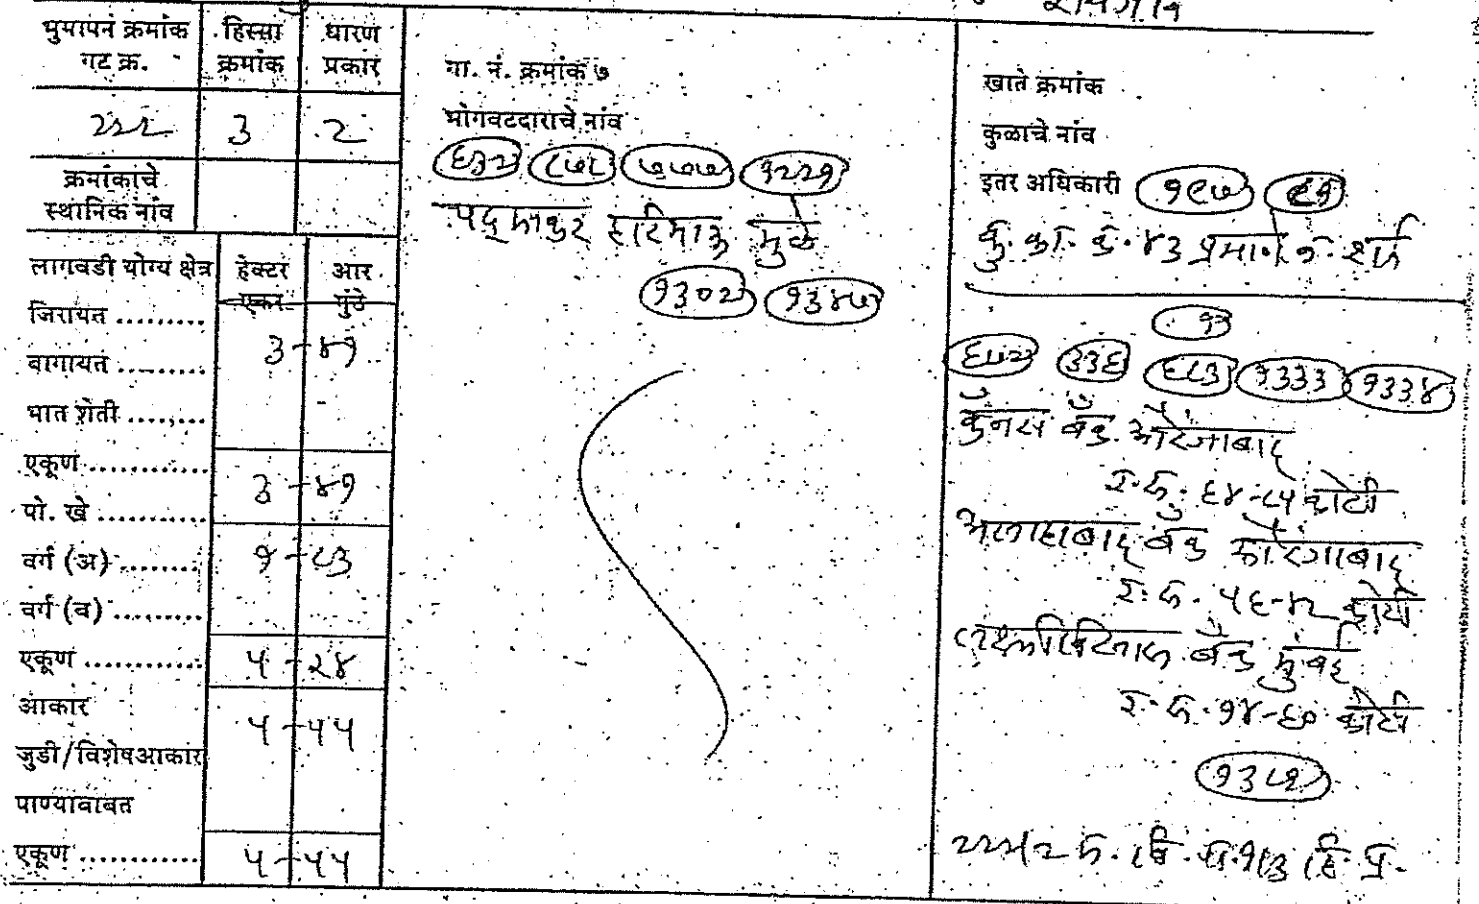 भुमापन क्रमांक गट क्र.
हिस्सा क्रमांक
धारण प्रकार
२२८
३
२
क्रमांकाचे स्थानिक नांव
लागवडी योग्य क्षेत्र
हेक्टर
एकर
आर
गुंठे
जिरायत .........
३-४१
बागायत .........
भात शेती ........
एकूण ............
३-४१
पो. खे ...........
वर्ग (अ) ........
१-८३
वर्ग (ब) .........
एकूण ............
५-२४
आकार
५-५५
जुडी/विशेषआकार
पाण्याबाबत
एकूण ............
५-५५
गा. नं. क्रमांक ७
भोगवटदाराचे नांव
६३२ ८७८ ७७७ १२२१
पद्माकर हरिभाऊ मुळे
१३०२ १३४७
खाते क्रमांक
कुळाचे नांव
इतर अधिकारी १९७
कु. का. क. ४३ प्रमाणे
१३
३३६ ६८३ १३३३ १३३४
बँक औरंगाबाद
६४-८५ कोटी
अलाहाबाद बँक औरंगाबाद
५६-४२ कोटी
बँक मुंबई
१४-६० कोटी
१३८१